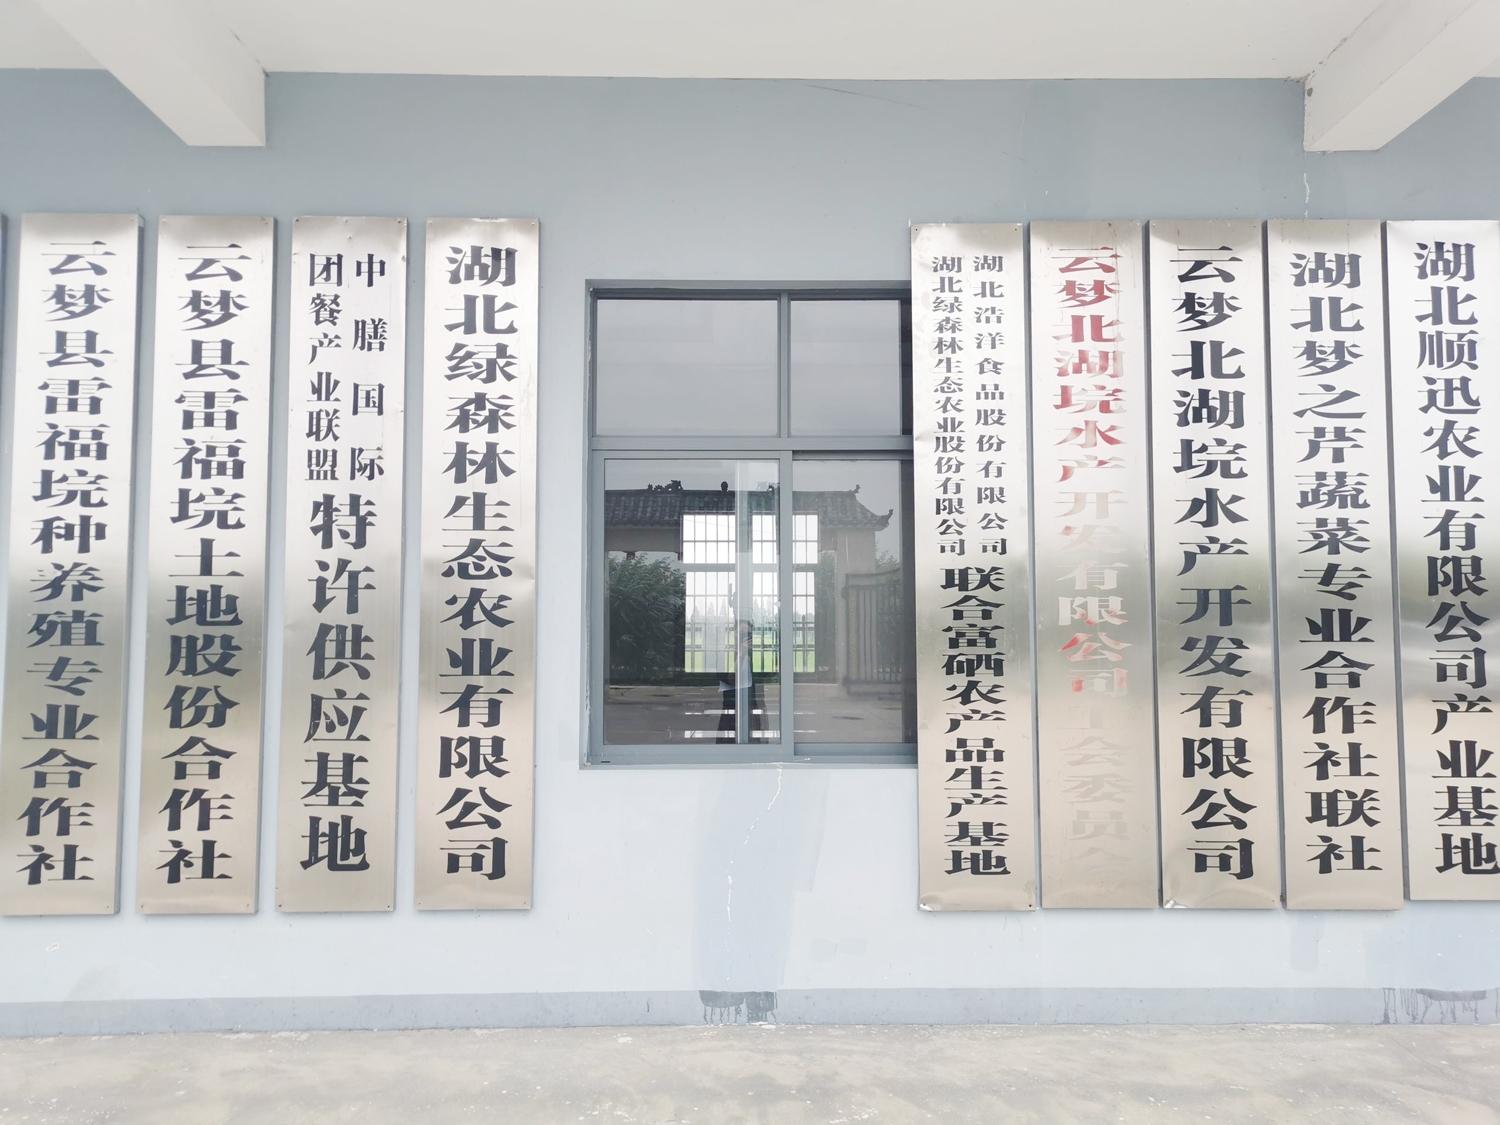 云梦县雷福垸种养殖专业合作社
云梦县雷福垸土地股份合作社
中膳国际
团餐产业联盟
特许供应基地
湖北绿森林生态农业有限公司
湖北浩洋食品股份有限公司
湖北绿森林生态农业股份有限公司
联合富硒农产品生产基地
云梦北湖垸水产开发有限公司工会委员会
云梦北湖垸水产开发有限公司
湖北梦之芹蔬菜专业合作社联社
湖北顺迅农业有限公司产业基地